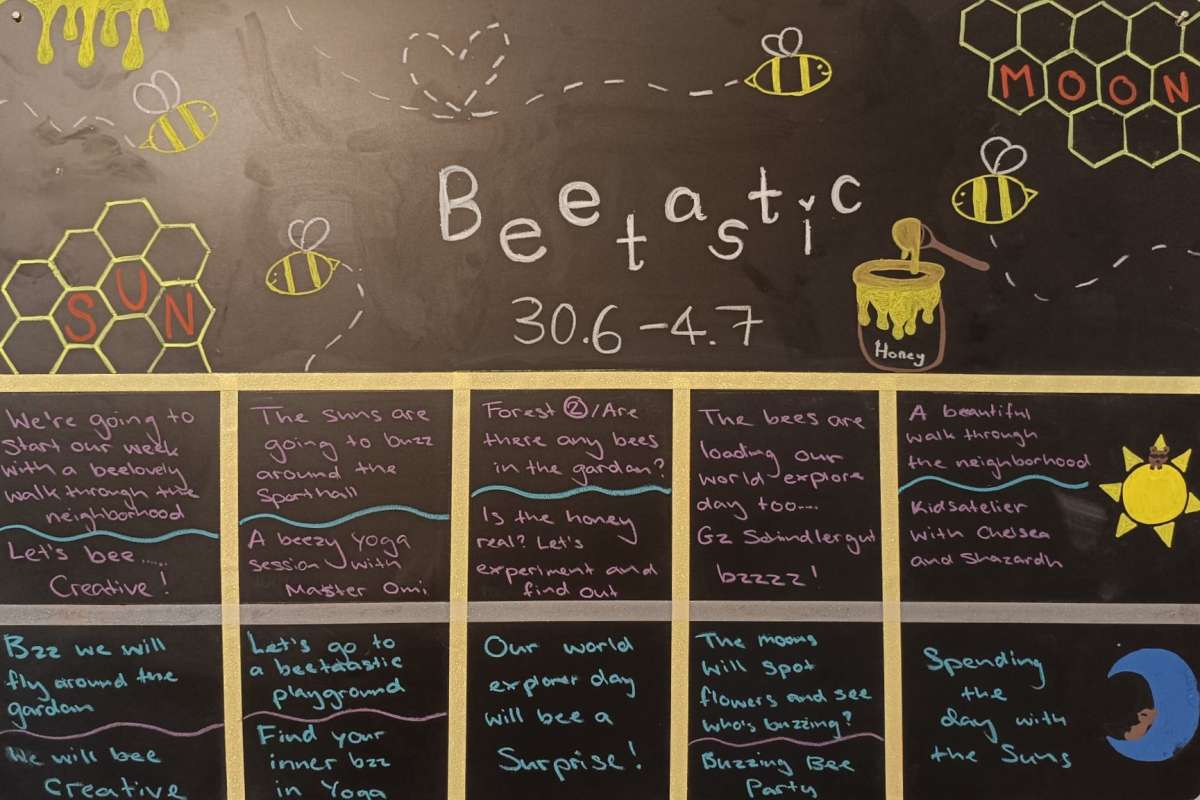 MOON
Beetastic
SUN
30.6-4.7
Honey
We're going to
start our week
with a beelovely
walk through the
neighborhood
Let's bee.....
Creative!
The suns are
going to buzz
around the
Sporthall
A beezy Yoga
session with
Master Omi
Forest ②/Are
there any bees
in the garden?
Is the honey
real? Let's
experiment and
find out
The bees are
loading our
world explore
day too...
Gz Schindlergut
bzzzz!
A beautiful
walk through
the neighborhood
Kidsatelier
with Chelsea
and Shazardh
Bzz we will
fly around the
garden
We will bee
Creative
Let's go to
a beetastic
playground
Find your
inner bzz
in Yoga
Our world
explorer day
will bee a
Surprise!
The moons
will spot
flowers and see
who's buzzing?
Buzzing Bee
Party
Spending
the
day with
the Suns